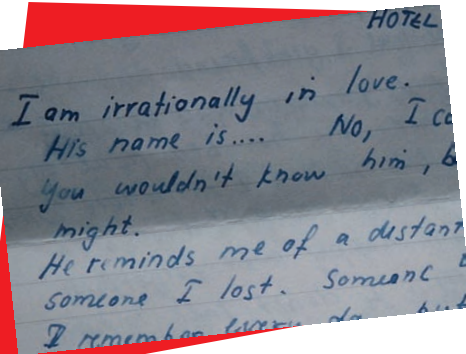 HOTEL
I am irrationally in love.
His name is.... No, I
you wouldn't know him,
might.
He reminds me of a distant
someone I lost. Someone
I remember every